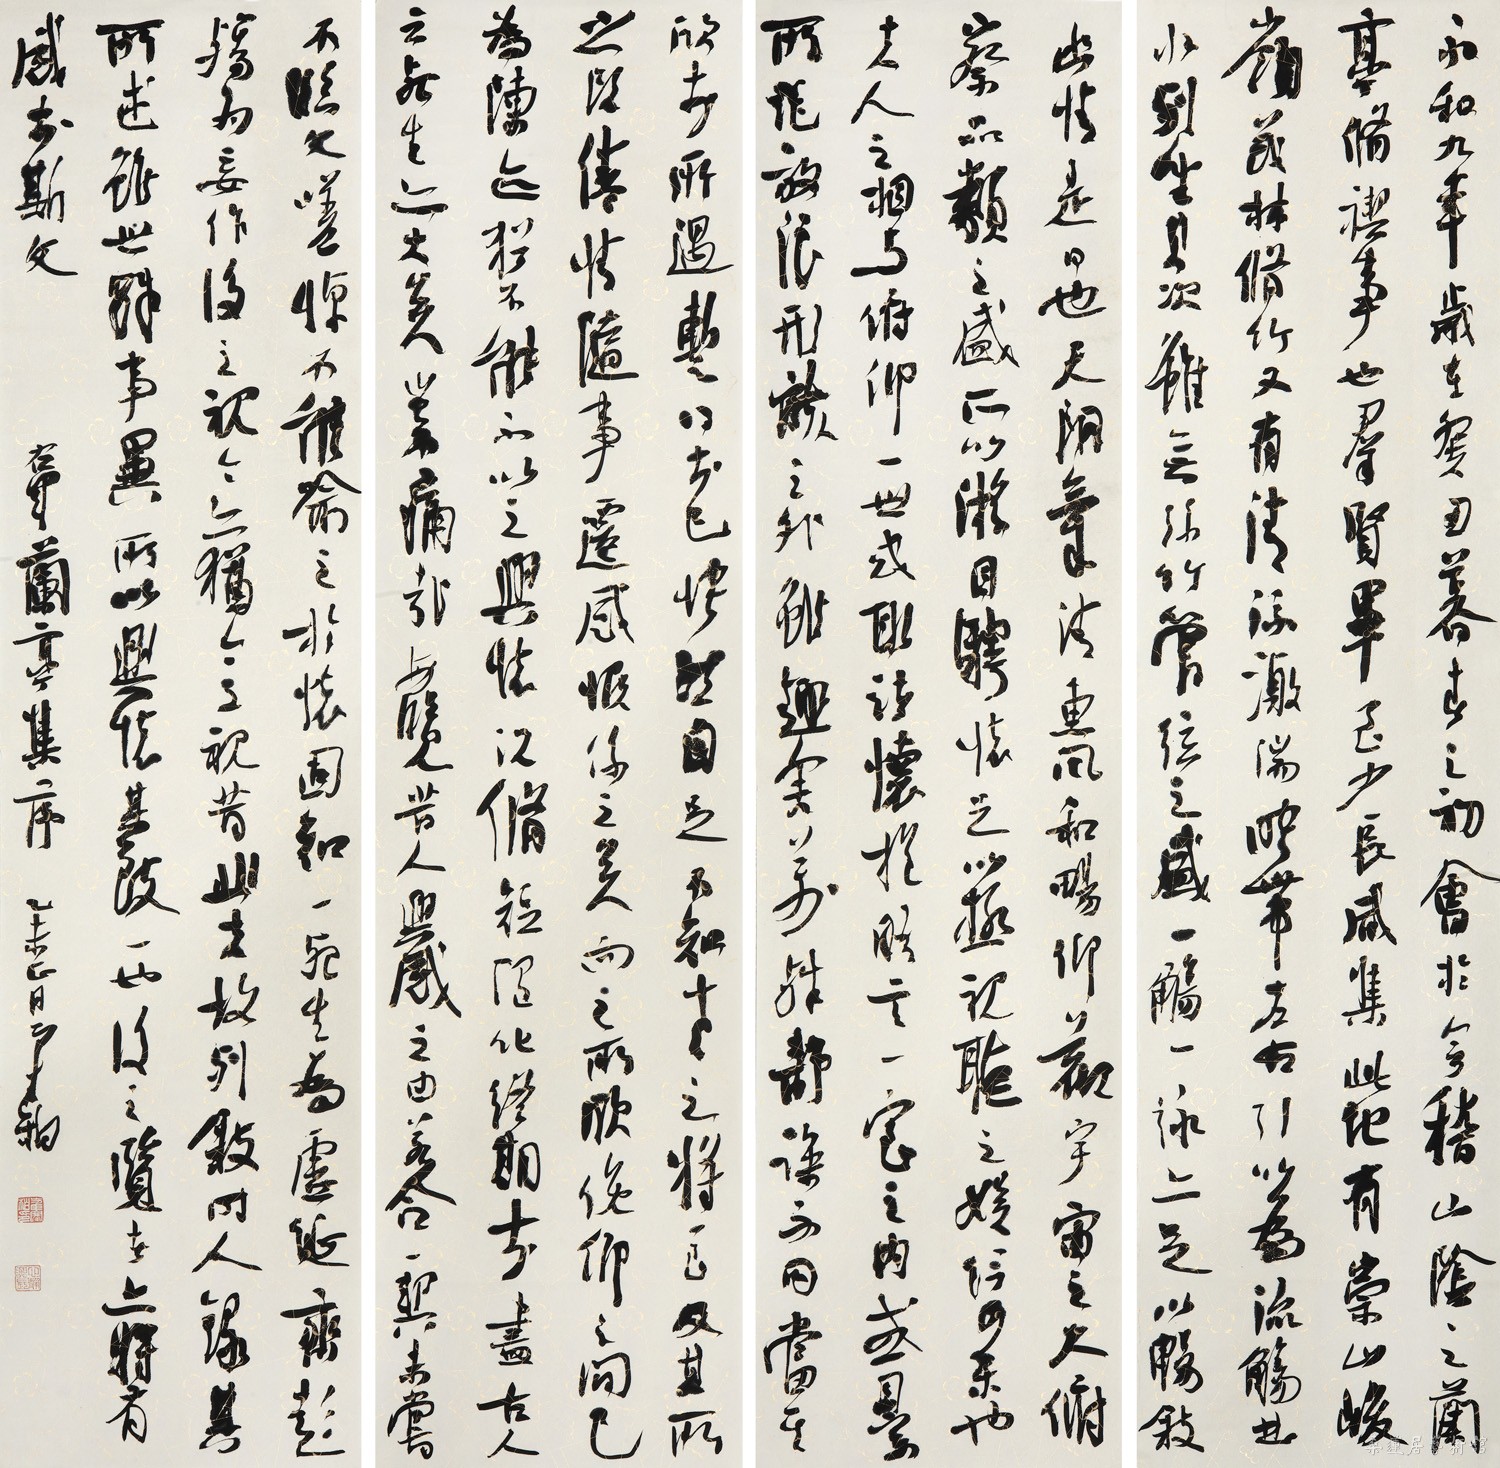 永和九年歲在癸丑暮春之初會於會稽山陰之蘭
亭脩禊事也羣賢畢至少長咸集此地有崇山峻
嶺茂林脩竹又有清流激湍映帶左右引以為流觴曲
水列坐其次雖無絲竹管弦之盛一觴一詠亦足以暢敘
幽情是日也天朗氣清惠風和暢仰觀宇宙之大俯
察品類之盛所以遊目騁懷足以極視聽之娛信可樂也
夫人之相與俯仰一世或取諸懷抱晤言一室之內或因寄
所託放浪形骸之外雖趣舍萬殊靜躁不同當其
欣於所遇暫得於己快然自足不知老之將至及其所
之既倦情隨事遷感慨係之矣向之所欣俛仰之間已
為陳迹猶不能不以之興懷況脩短隨化終期於盡古人
云死生亦大矣豈不痛哉每覽昔人興感之由若合一契未嘗
不臨文嗟悼不能喻之於懷固知一死生為虛誕齊彭
殤為妄作後之視今亦猶今之視昔悲夫故列敘時人錄其
所述雖世殊事異所以興懷其致一也後之覽者亦將有
感於斯文
右軍蘭亭集序 乙未正月